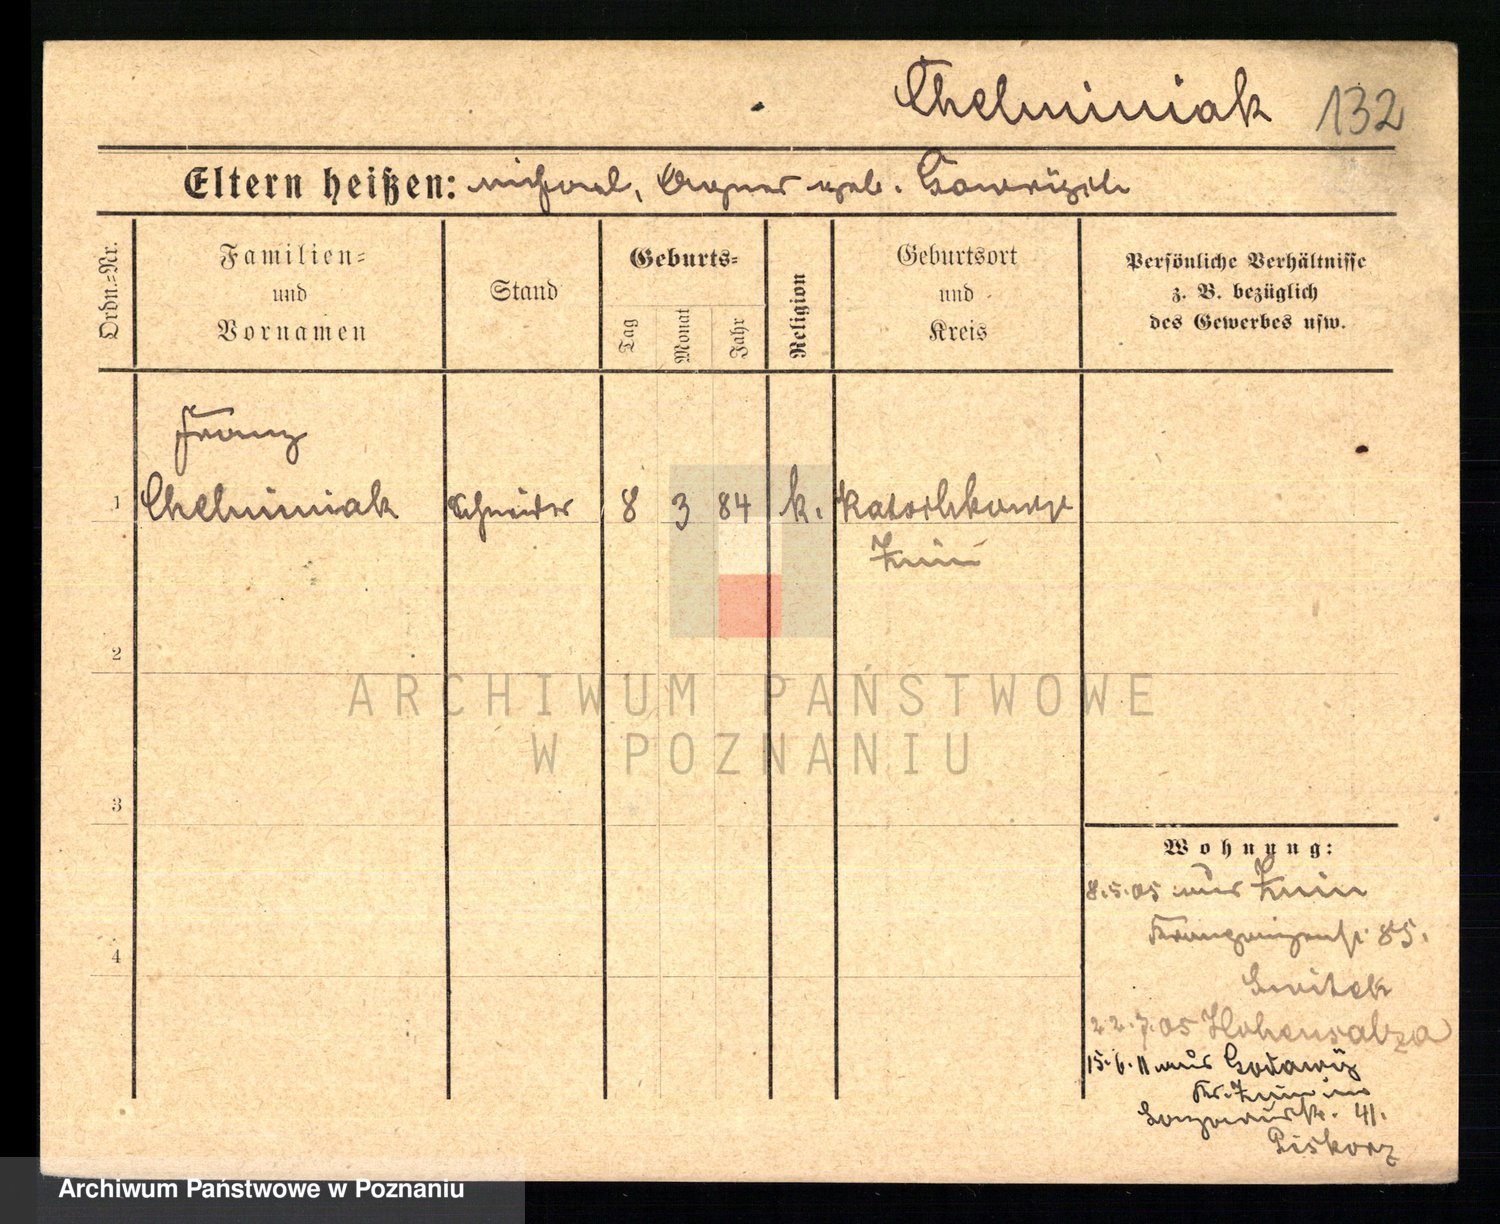 Chelminiak 132
Eltern heißen: Michael, Agnes geb.
Ordn.-Nr.
Familien-
und
Vornamen
Stand
Geburts-
Tag
Monat
Jahr
Religion
Geburtsort
und
Kreis
Persönliche Verhältnisse
z. B. bezüglich
des Gewerbes usw.
Franz
1 Chelminiak Schneider 8 3 84 k.
Znin
2
3
4
ARCHIWUM PAŃSTWOWE
W POZNANIU
Wohnung:
8.5.05 aus Znin
85.
Switek
22.7.05 Hohensalza
15.6.11 aus
Kr. Znin in
41.
Piskorz
Archiwum Państwowe w Poznaniu